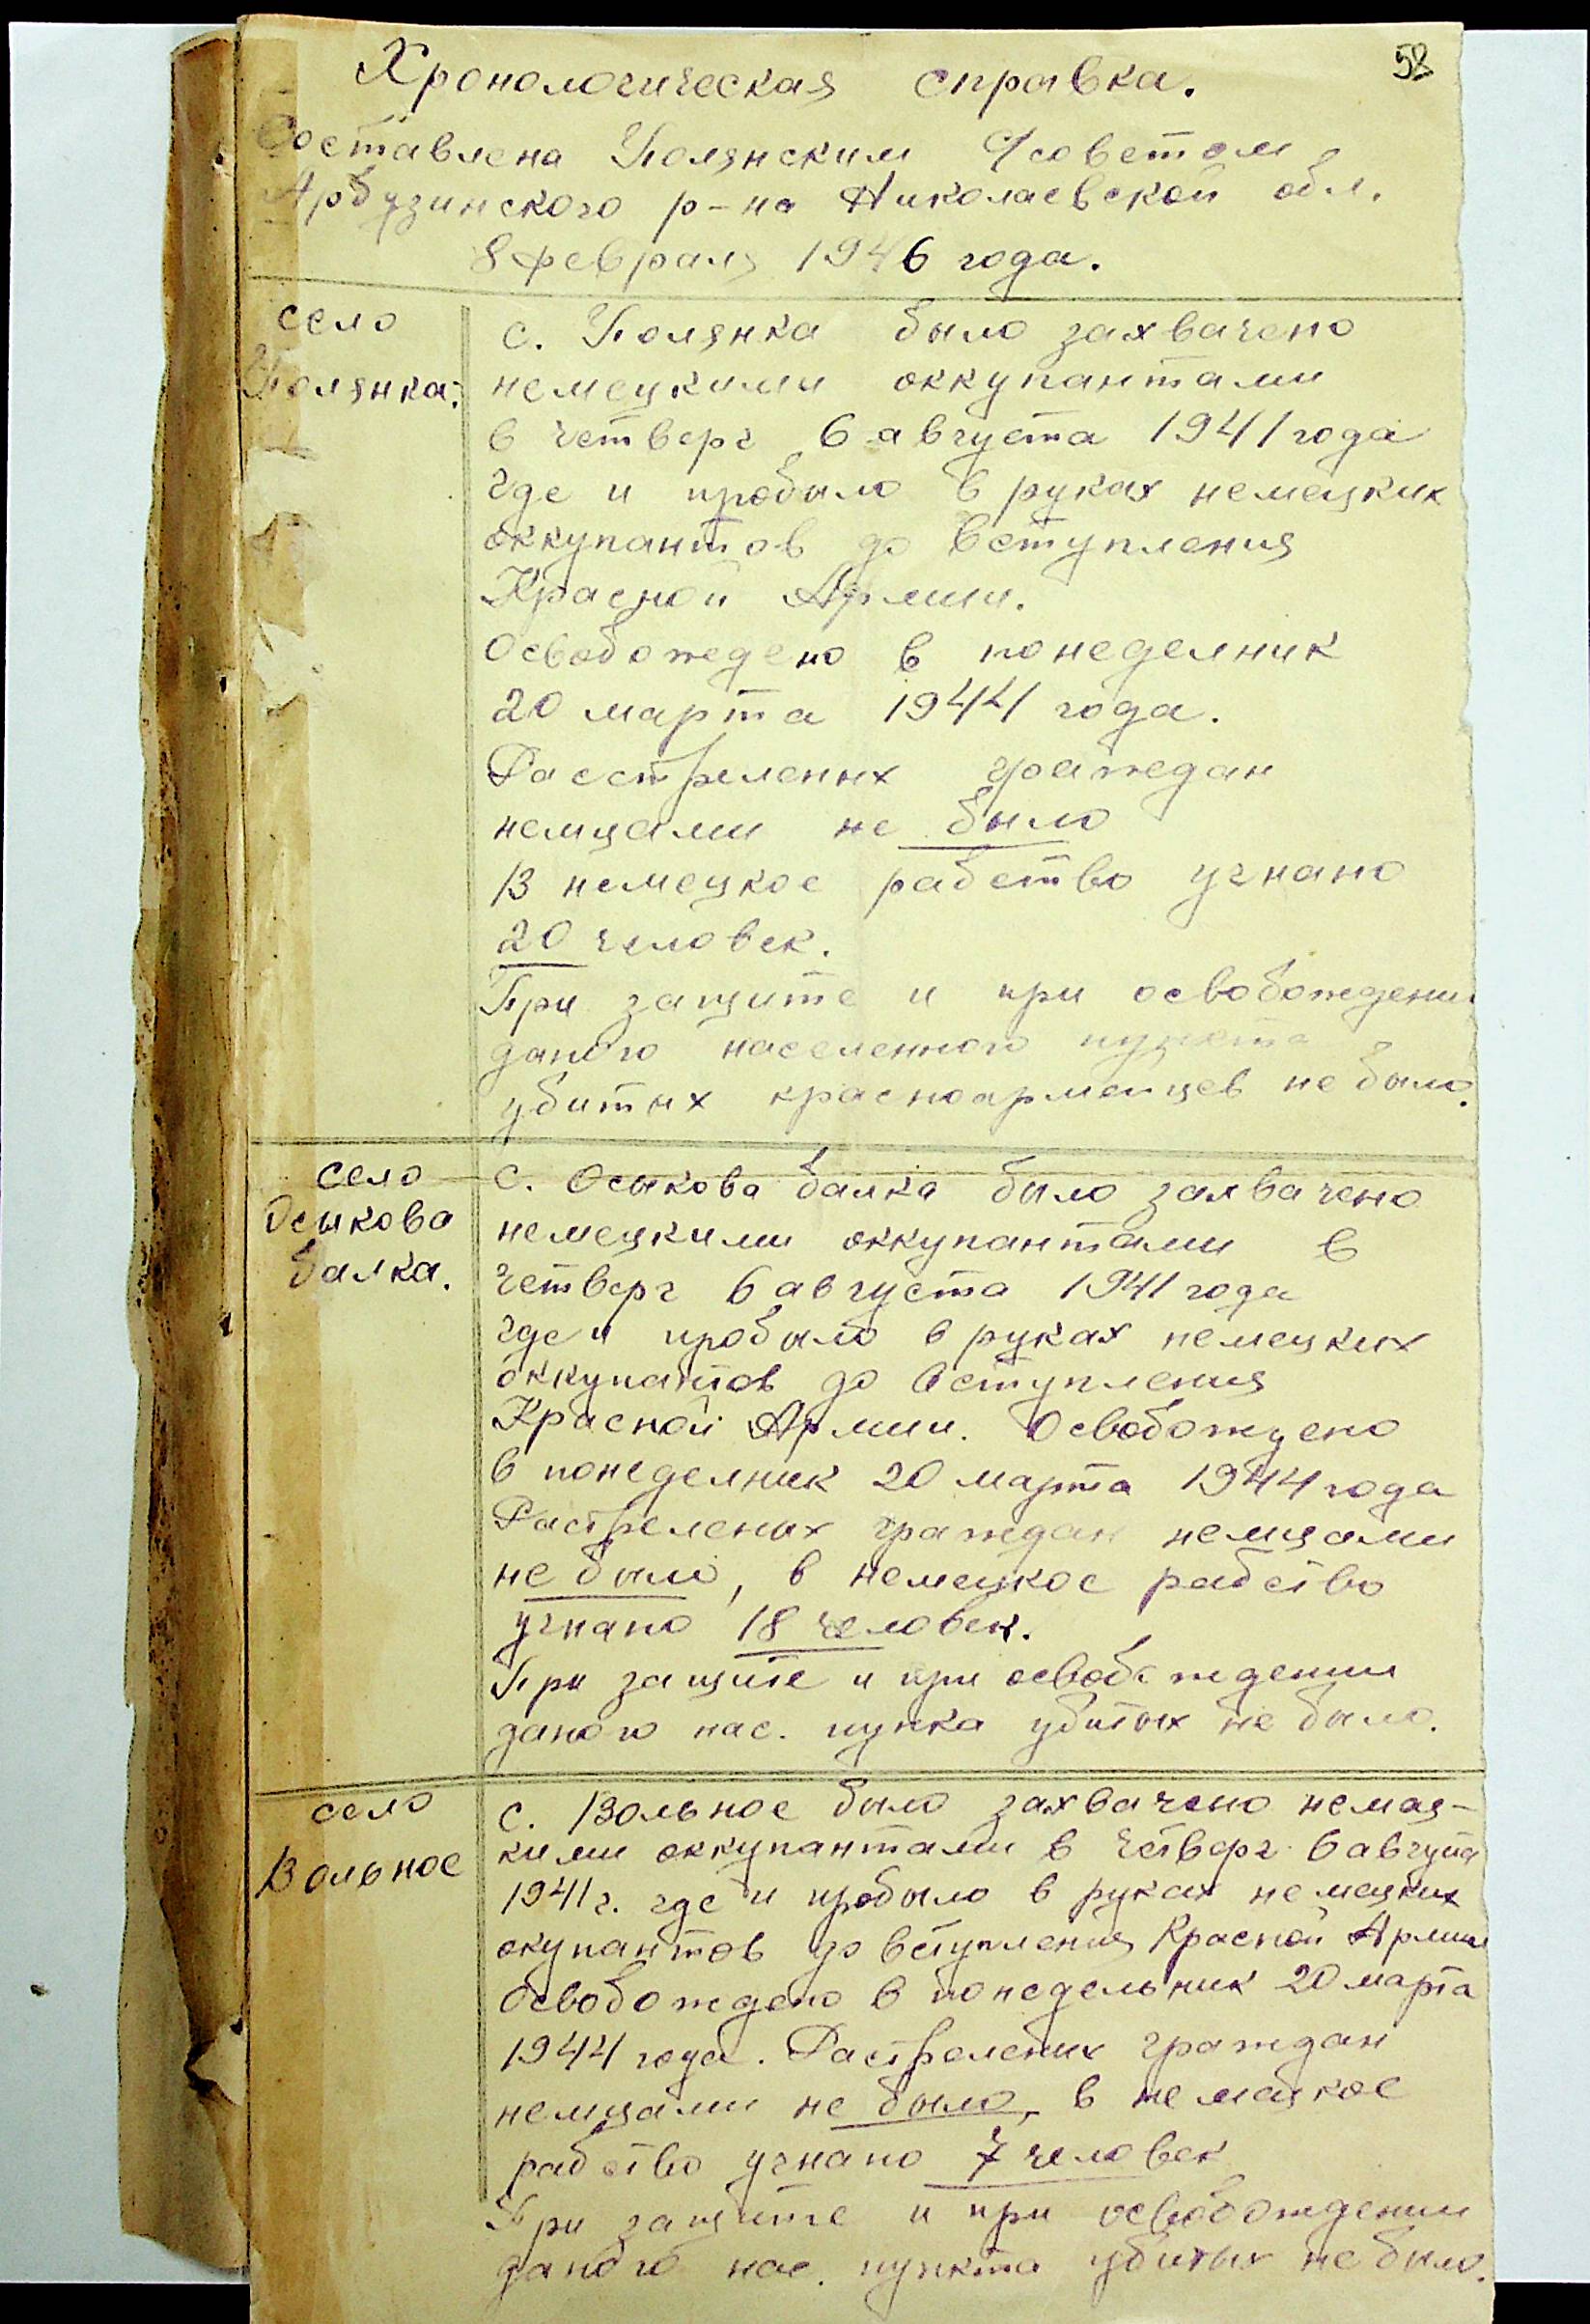 58
Хронологическая справка.
Составлена Полянским С/советом
Арбузинского р-на Николаевской обл.
8 февраля 1946 года.
село
Полянка.
с. Полянка было захвачено
немецкими оккупантами
в четверг 6 августа 1941 года
где и пробыло в руках немецких
оккупантов до вступления
Красной Армии.
Освобождено в понеделник
20 марта 1944 года.
Расстреленых граждан
немцами не было
В немецкое рабство угнано
20 человек.
При защите и при освобождени
даного населенного пункта
убитых красноармейцев не было.
село
Осыкова
балка.
с. Осыкова балка было захвачено
немецкими оккупантами в
четверг 6 августа 1941 года
где и пробыло в руках немецких
оккупантов до вступления
Красной Армии. Освобождено
в понеделник 20 марта 1944 года
Растреленых граждан немцами
не было, в немецкое рабство
угнано 18 человек.
При защите и при освобождении
даного нас. пунка убитых не было.
село
Вольное
с. Вольное было захвачено немец-
кими оккупантами в четверг 6 августа
1941 г. где и пробыло в руках немецких
окупантов до вступления Красной Армии
Освобождено в понедельник 20 марта
1944 года. Растреленых граждан
немцами не было, в немецкое
рабство угнано 7 человек
При защите и при освобождении
даного нас. пункта убитых не было.